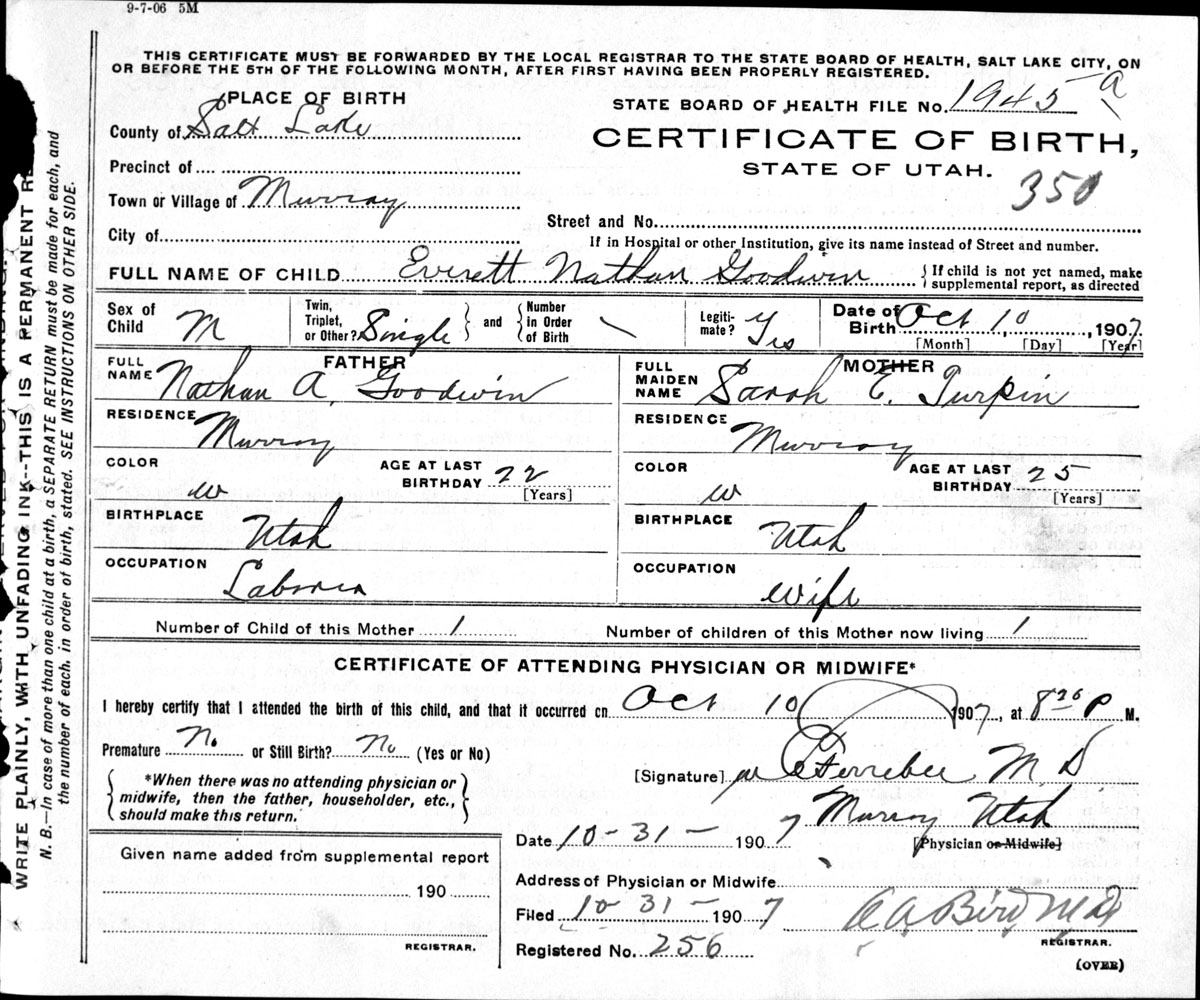 9-7-06 5M
THIS CERTIFICATE MUST BE FORWARDED BY THE LOCAL REGISTRAR TO THE STATE BOARD OF HEALTH, SALT LAKE CITY, ON
OR BEFORE THE 5TH OF THE FOLLOWING MONTH, AFTER FIRST HAVING BEEN PROPERLY REGISTERED.
PLACE OF BIRTH
STATE BOARD OF HEALTH FILE No. 1945 a
County of Salt Lake
CERTIFICATE OF BIRTH,
Precinct of
STATE OF UTAH.
350
Town or Village of Murray
Street and No.
City of
If in Hospital or other Institution, give its name instead of Street and number.
FULL NAME OF CHILD Everett Nathan Goodwin { If child is not yet named, make
supplemental report, as directed
Sex of Child M Twin, Triplet, or Other? Single } and { Number in Order of Birth \ Legiti-mate? Yes Date of Birth Oct 10, 1907
[Month] [Day] [Year]
FATHER
MOTHER
FULL NAME Nathan A. Goodwin
FULL MAIDEN NAME Sarah E. Turpin
RESIDENCE Murray
RESIDENCE Murray
COLOR w AGE AT LAST BIRTHDAY 22 [Years]
COLOR w AGE AT LAST BIRTHDAY 25 [Years]
BIRTHPLACE Utah
BIRTHPLACE Utah
OCCUPATION Laborer
OCCUPATION Wife
Number of Child of this Mother 1 Number of children of this Mother now living 1
CERTIFICATE OF ATTENDING PHYSICIAN OR MIDWIFE*
I hereby certify that I attended the birth of this child, and that it occurred on Oct 10 1907, at 8 P M.
Premature No or Still Birth? No (Yes or No)
[Signature] Ferrebee M D
{ *When there was no attending physician or
midwife, then the father, householder, etc.,
should make this return. }
Murray Utah
Date 10-31- 1907 [Physician or Midwife]
Given name added from supplemental report
190
REGISTRAR.
Address of Physician or Midwife
Filed 10 31- 1907 A A Bird M D
REGISTRAR.
Registered No. 256
(OVER)
WRITE PLAINLY, WITH UNFADING INK--THIS IS A PERMANENT
N. B.—In case of more than one child at a birth, a SEPARATE RETURN must be made for each, and
the number of each, in order of birth, stated. SEE INSTRUCTIONS ON OTHER SIDE.